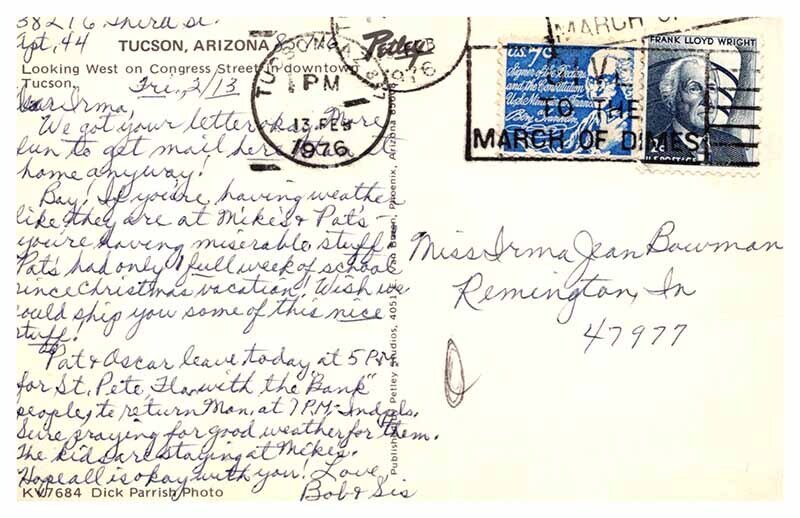 Apt. 44
TUCSON, ARIZONA
Looking West on Congress Street in downtown
Tucson.
Fri., 2/13
Dear Irma,
We got your letter o.k. More
fun to get mail here than at
home anyway!
Boy! If you're having weather
like they are at Mike's & Pat's -
you're having miserable stuff!
Pat's had only 1 full week of school
since Christmas vacation! Wish we
could ship you some of this nice
stuff!
Pat & Oscar leave today at 5 PM
for St. Pete, Fla. with the "Bank"
people, to return Mon. at 7 PM - Indpls.
Sure praying for good weather for them.
The kids are staying at Mikes.
Hope all is okay with you! Love,
Bob & Sis
KV7684 Dick Parrish Photo
Petley
TUCSON
PM
13 FEB
1976
1976
MARCH OF
U.S. 7c
Signer of the Declaration
and the Constitution
U.S. Minister to France
Benj Franklin
FRANK LLOYD WRIGHT
2c
U.S. POSTAGE
TO THE
MARCH OF DIMES
Miss Irma Jean Bowman
Remington, In
47977